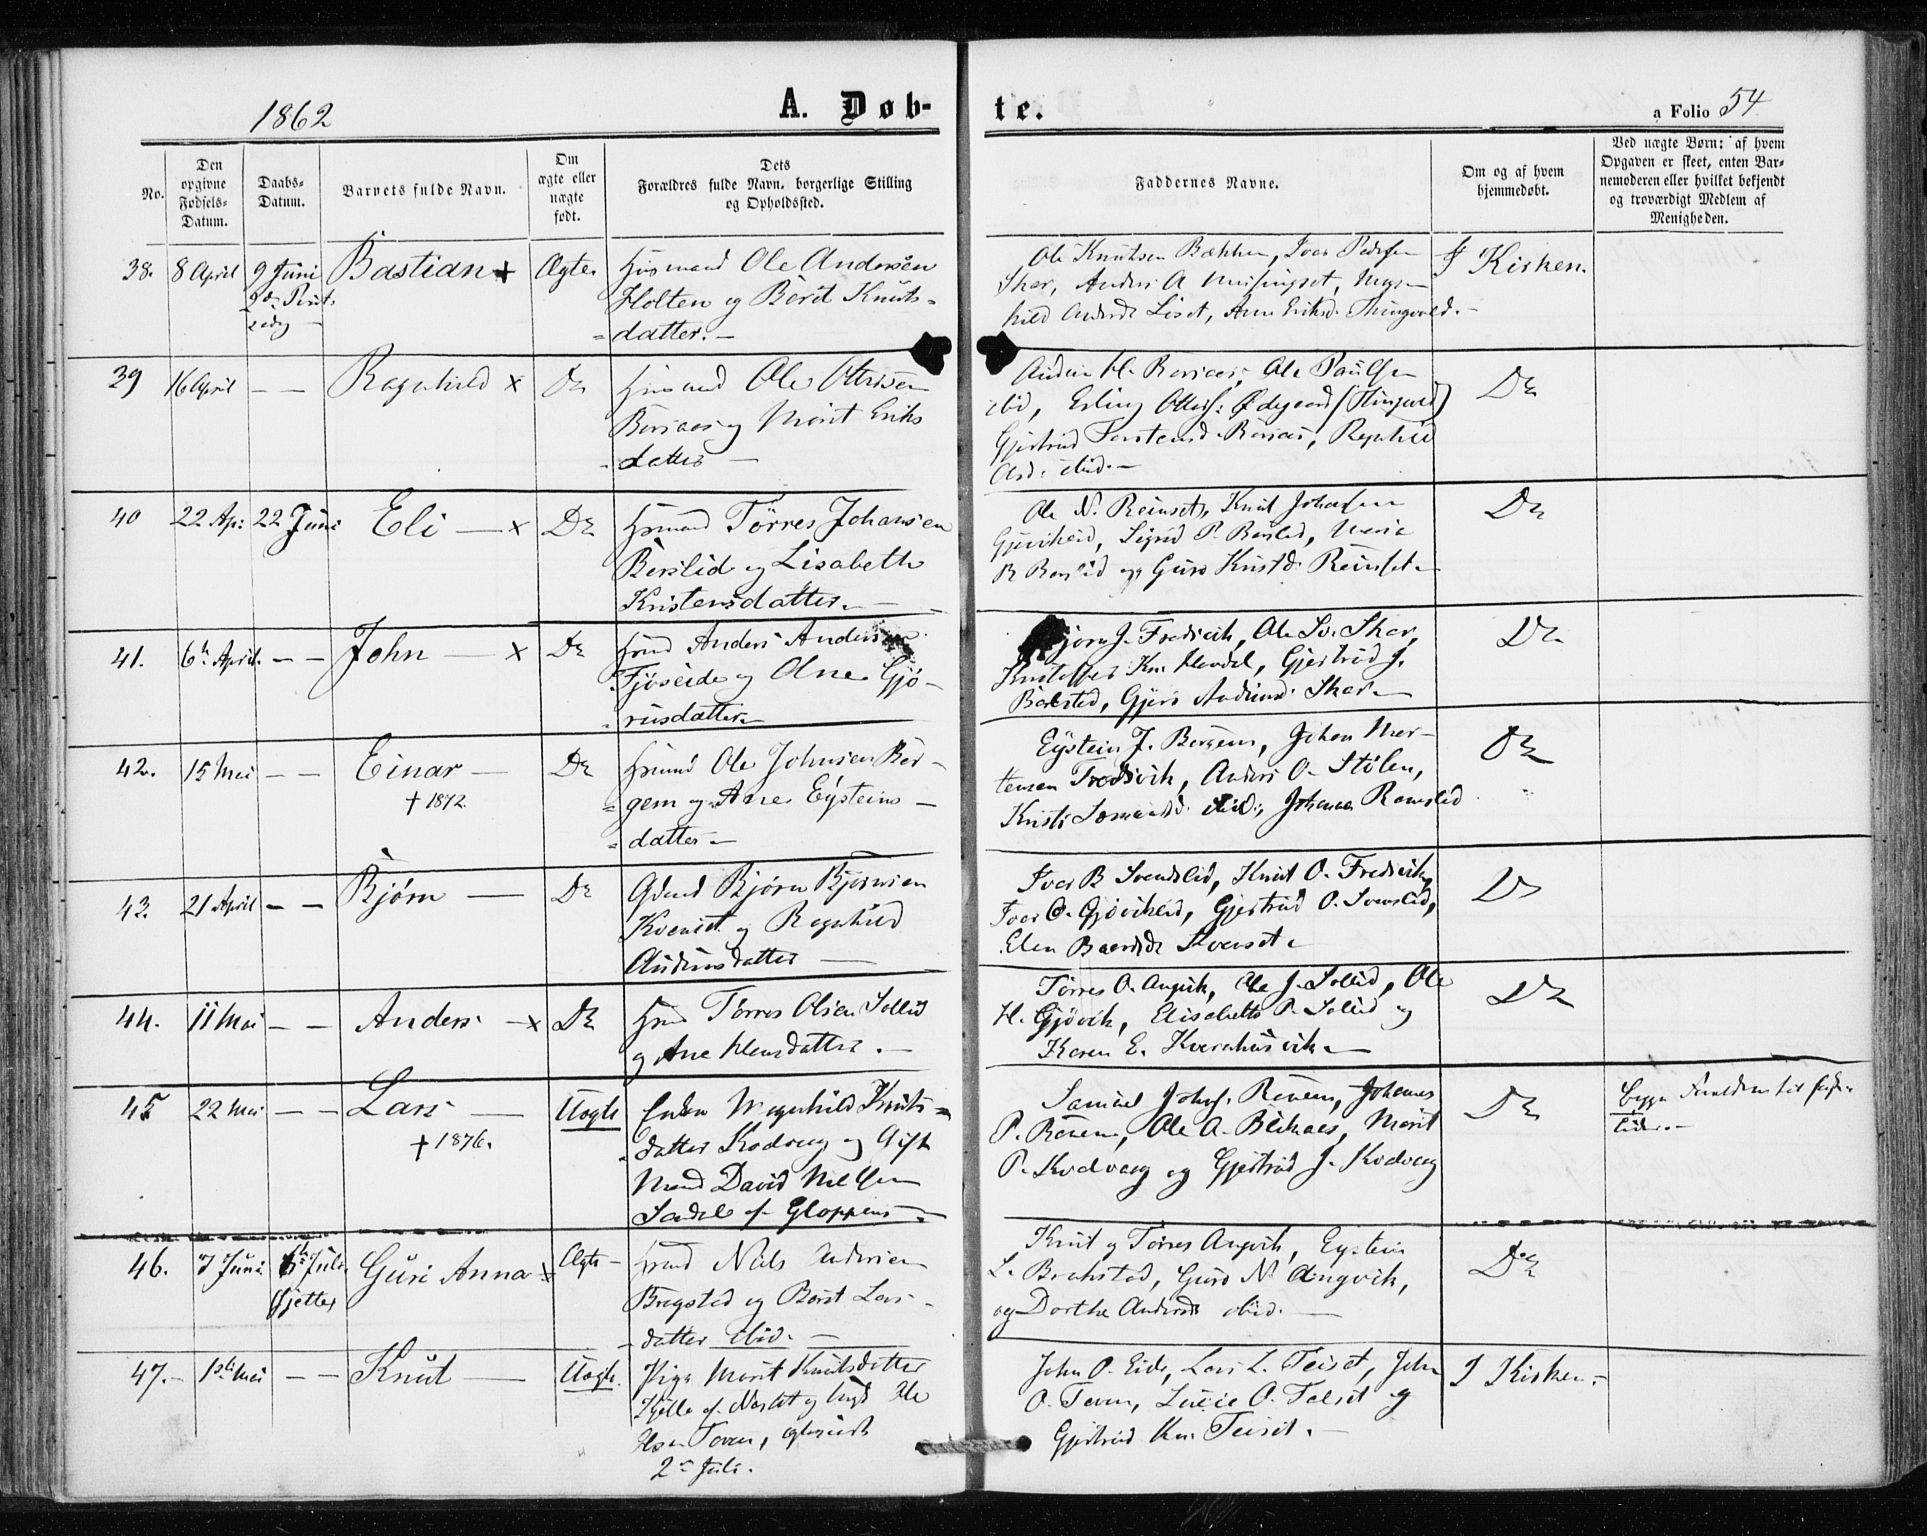 1862
A. Døb-
te.
a Folio 54
No.
Den
opgivne
Fødsels-
Datum.
Daabs-
Datum.
Barnets fulde Navn.
Om
ægte eller
uægte
født.
Dets
Forældres fulde Navn, borgerlige Stilling
og Opholdssted.
Faddernes Navne.
Om og af hvem
hjemmedøbt.
Ved uægte Børn: af hvem
Opgaven er skeet, enten Bar-
nemoderen eller hvilket bekjendt
og troværdigt Medlem af
Menigheden.
38. 8 April 9 Juni Bastian x Ægte
Husmand Ole Andersen
Holten og Berit Knuts-
datter.
Ole Knutsen Bakken, Iver Pedersen
Skar, Anders A
hild Andersd. Liset, Ane Eriksd. Thingvold.
I Kirken.
39 16 April — — Ragnhild x Do
Husmand Ole Ottesen
Boraas og Marit Eriks
datter
Anders H. Boraas, Ole Paulsen
ibid, Erling Ottes: Ødegaard (Thingvold)
Gjertrud Torstensd. Boraas, Ragnhild
ibid.
Do
40 22 Ap: 22 Juni Eli — x Do
Husmand Törres Johansen
Berslid og Lisabeth
Kristensdatter.
Ole N. Reinset, Knut Johansen
Gjøvikeid, Sigrid P. Berslid, Marie
B. Berslid og Guro Knutsd. Reinset.
Do
41. 6te April — — John — x Do
Hmd Anders Andersen
Fjöseide og Ane Gjö-
rusdatter
Bjørn J. Fredsvik, Ole Iv. Skar,
Kristoffer Kn. Hovdal, Gjertrud J.
Bolstad, Gjøro Andersd. Skar.
Do
42. 15 Mai — — Einar — Do
† 1872.
Husmd Ole Johnsen Ber-
gem og Ane Eÿsteins
datter
Eÿstein J. Bergem, Johan Mor-
tensen Fredsvik, Anders O. Stölen,
Do
43. 21 April — — Bjørn — Do
Gdmd Bjørn Bjørnsen
Kvenset og Ragnhild
Audunsdatter
Iver B Svendslid, Knut O. Fredsvik,
Iver O. Gjøvikeid, Gjertrud O. Svenslid,
Elen Baardsd. Kvenset.
Do
44. 11 Mai — — Anders — x Do
Hmd Törres Olsen Sollid
og Ane Monsdatter.
Törres O. Angvik, Ole J. Sollid, Ole
H. Gjövik, Elisabeth P. Sollid og
Karen E. Kvernhusvik.
Do
45 22 Mai — — Lars — Uægte
† 1876.
Enken Magnhild Knuts-
datter Kodvaag og Gift
Mand David Nilssen
Sandal af Gloppen
Samuel Johns. Reven, Johannes
P. Reven, Ole A. Blikaas, Marit
P. Kodvaag og Gjertrud J. Kodvaag
Do
Begge Forældrene
46. 7 Juni 6te Juli Guri Anna x Ægte
Hmd Nils Andersen
Bragstad og Berit Lars-
datter ibid.
Knut og Törres Angvik, Eystein
L. Brakstad, Guro N. Angvik,
og Dorthe Andersd. ibid.
Do
47. 1ste Mai — — Knut — Uægte.
Pige Marit Knutsdatter
Hjelle af Nesset og Ungk. Ole
Olsen Toven,
2den Juli.
John O. Eide, Lars L. Teiset, John
O. Toven, Lucie O. Talset og
Gjertrud Kn. Teiset.
I Kirken.